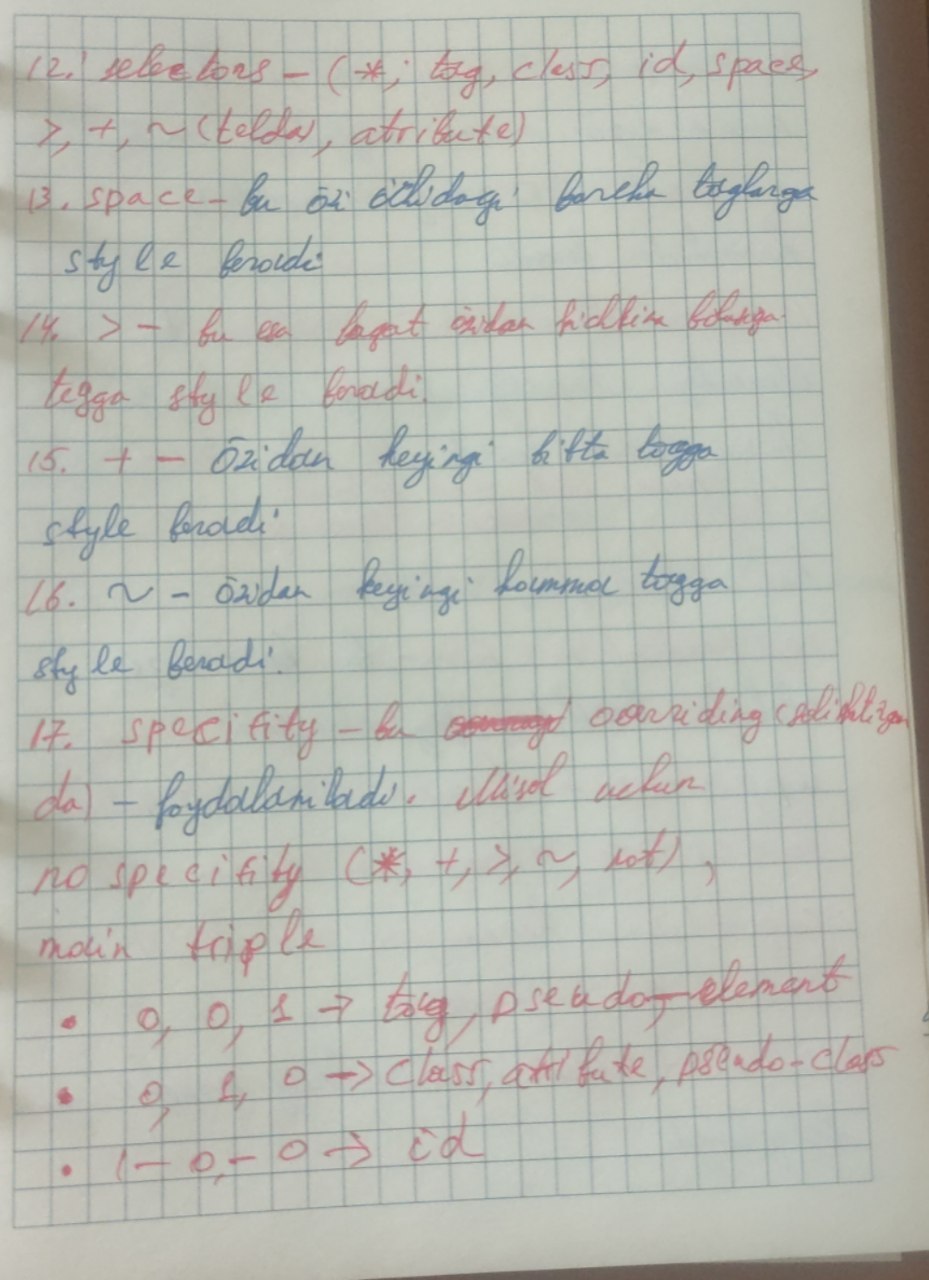 12. selectors - (*, tag, class, id, space,
>, +, ~ (telda), atribute)
13. space - bu özi ichidagi barcha taglarga
style beradi
14. > - bu esa faqat özidan bolgan
tegga style beradi.
15. + - Özidan keyingi bitta tegga
style beradi
16. ~ - özidan keyingi hamma tegga
style beradi.
17. specifity - bu overriding
da) - foydalaniladi. Misol uchun
no specifity (*, +, >, ~, not),
main triple
• 0, 0, 1 → tag, pseudo-element
• 0, 1, 0 → class, atribute, pseudo-class
• 1 - 0, - 0 → id